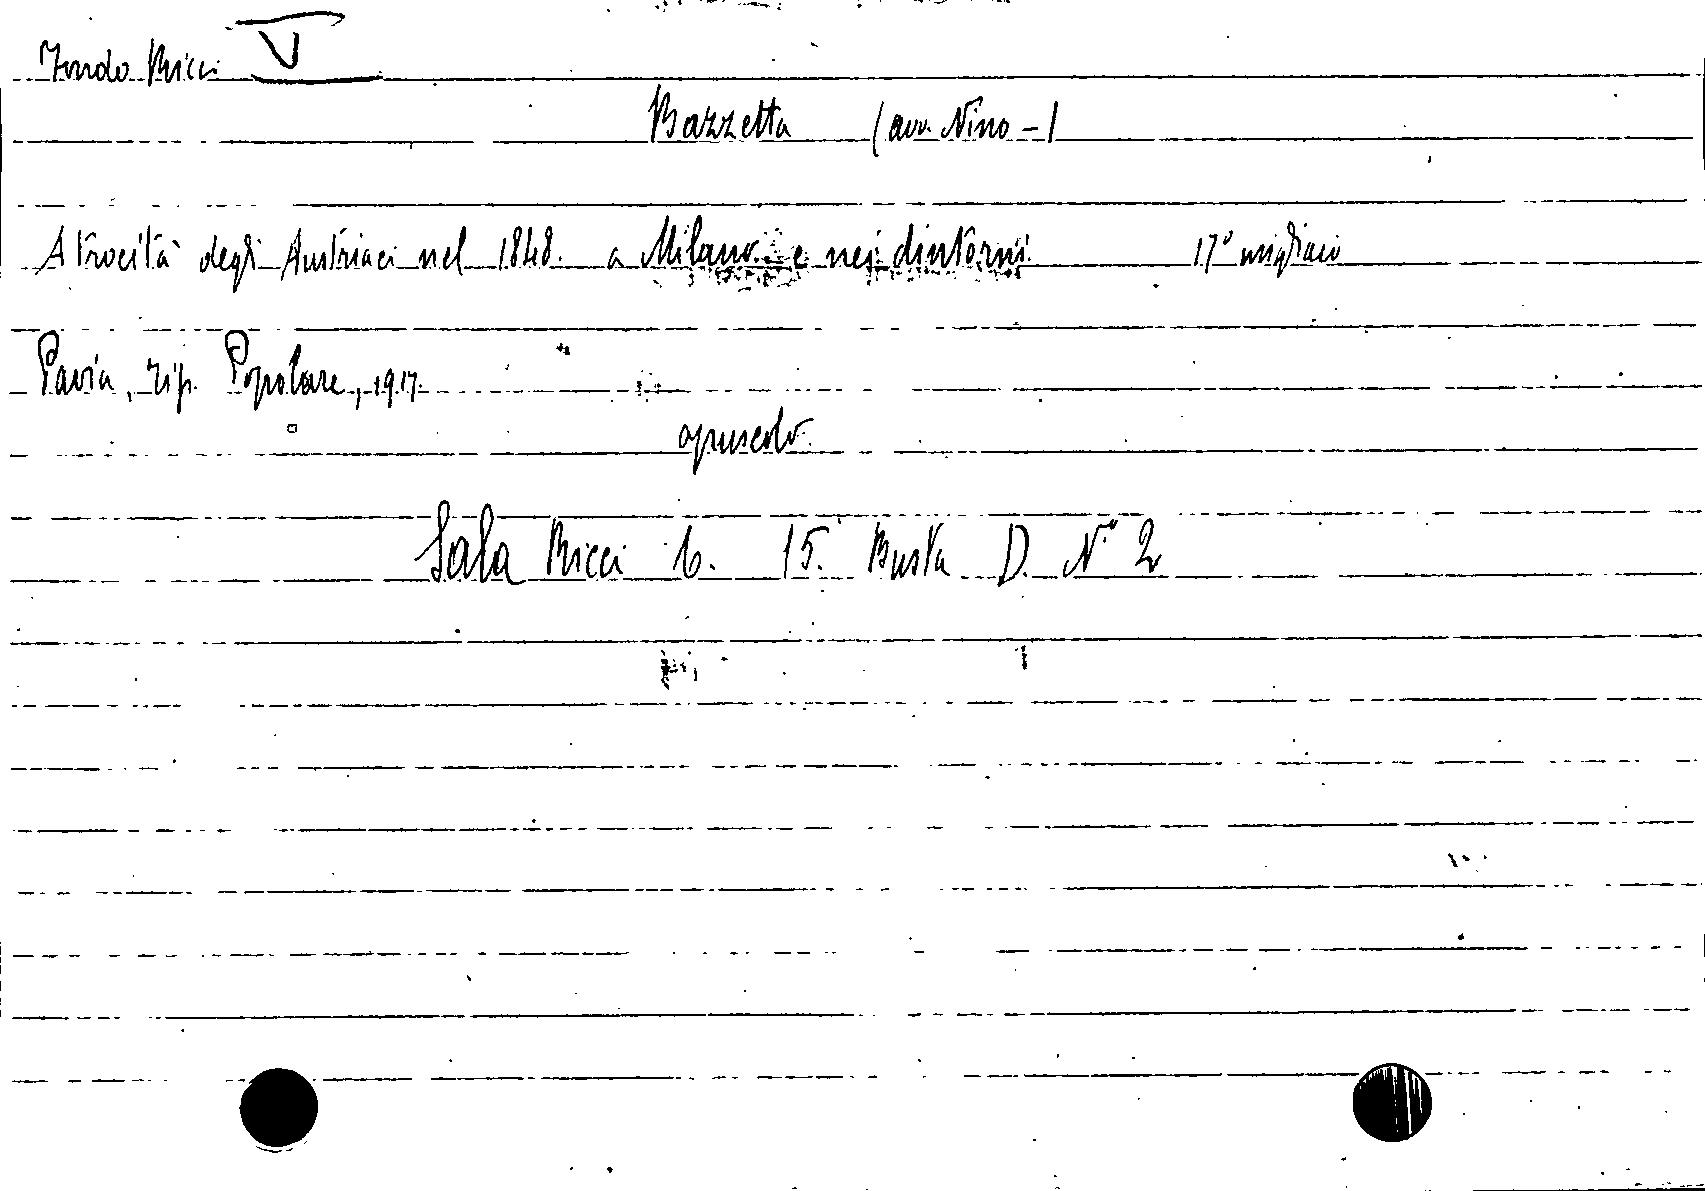 Fondo Ricci V
Bazzetta (avv. Nino -)
Atrocità degli Austriaci nel 1848. a Milano e nei dintorni. 17° migliaio
Pavia, Tip. Popolare, 1917.
opuscolo.
Sala Ricci 6. 15. Busta D. N.° 2